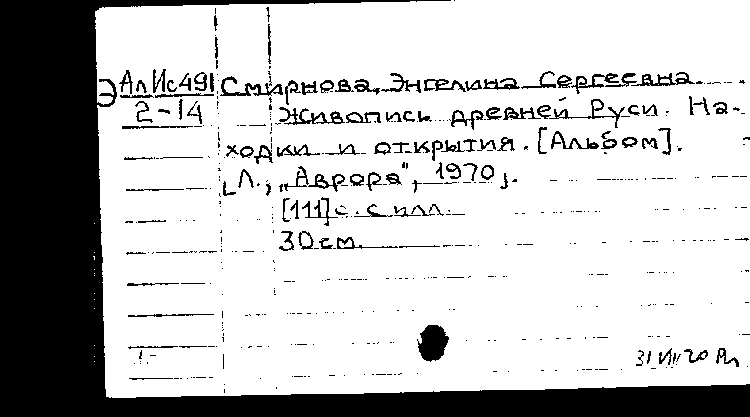 Э АлИс491 Смирнова, Энгелина Сергеевна.
2-14 Живопись древней Руси. На-
ходки и открытия. [Альбом].
[Л., „Аврора", 1970].
[111]с. с илл.
30см.
1.-